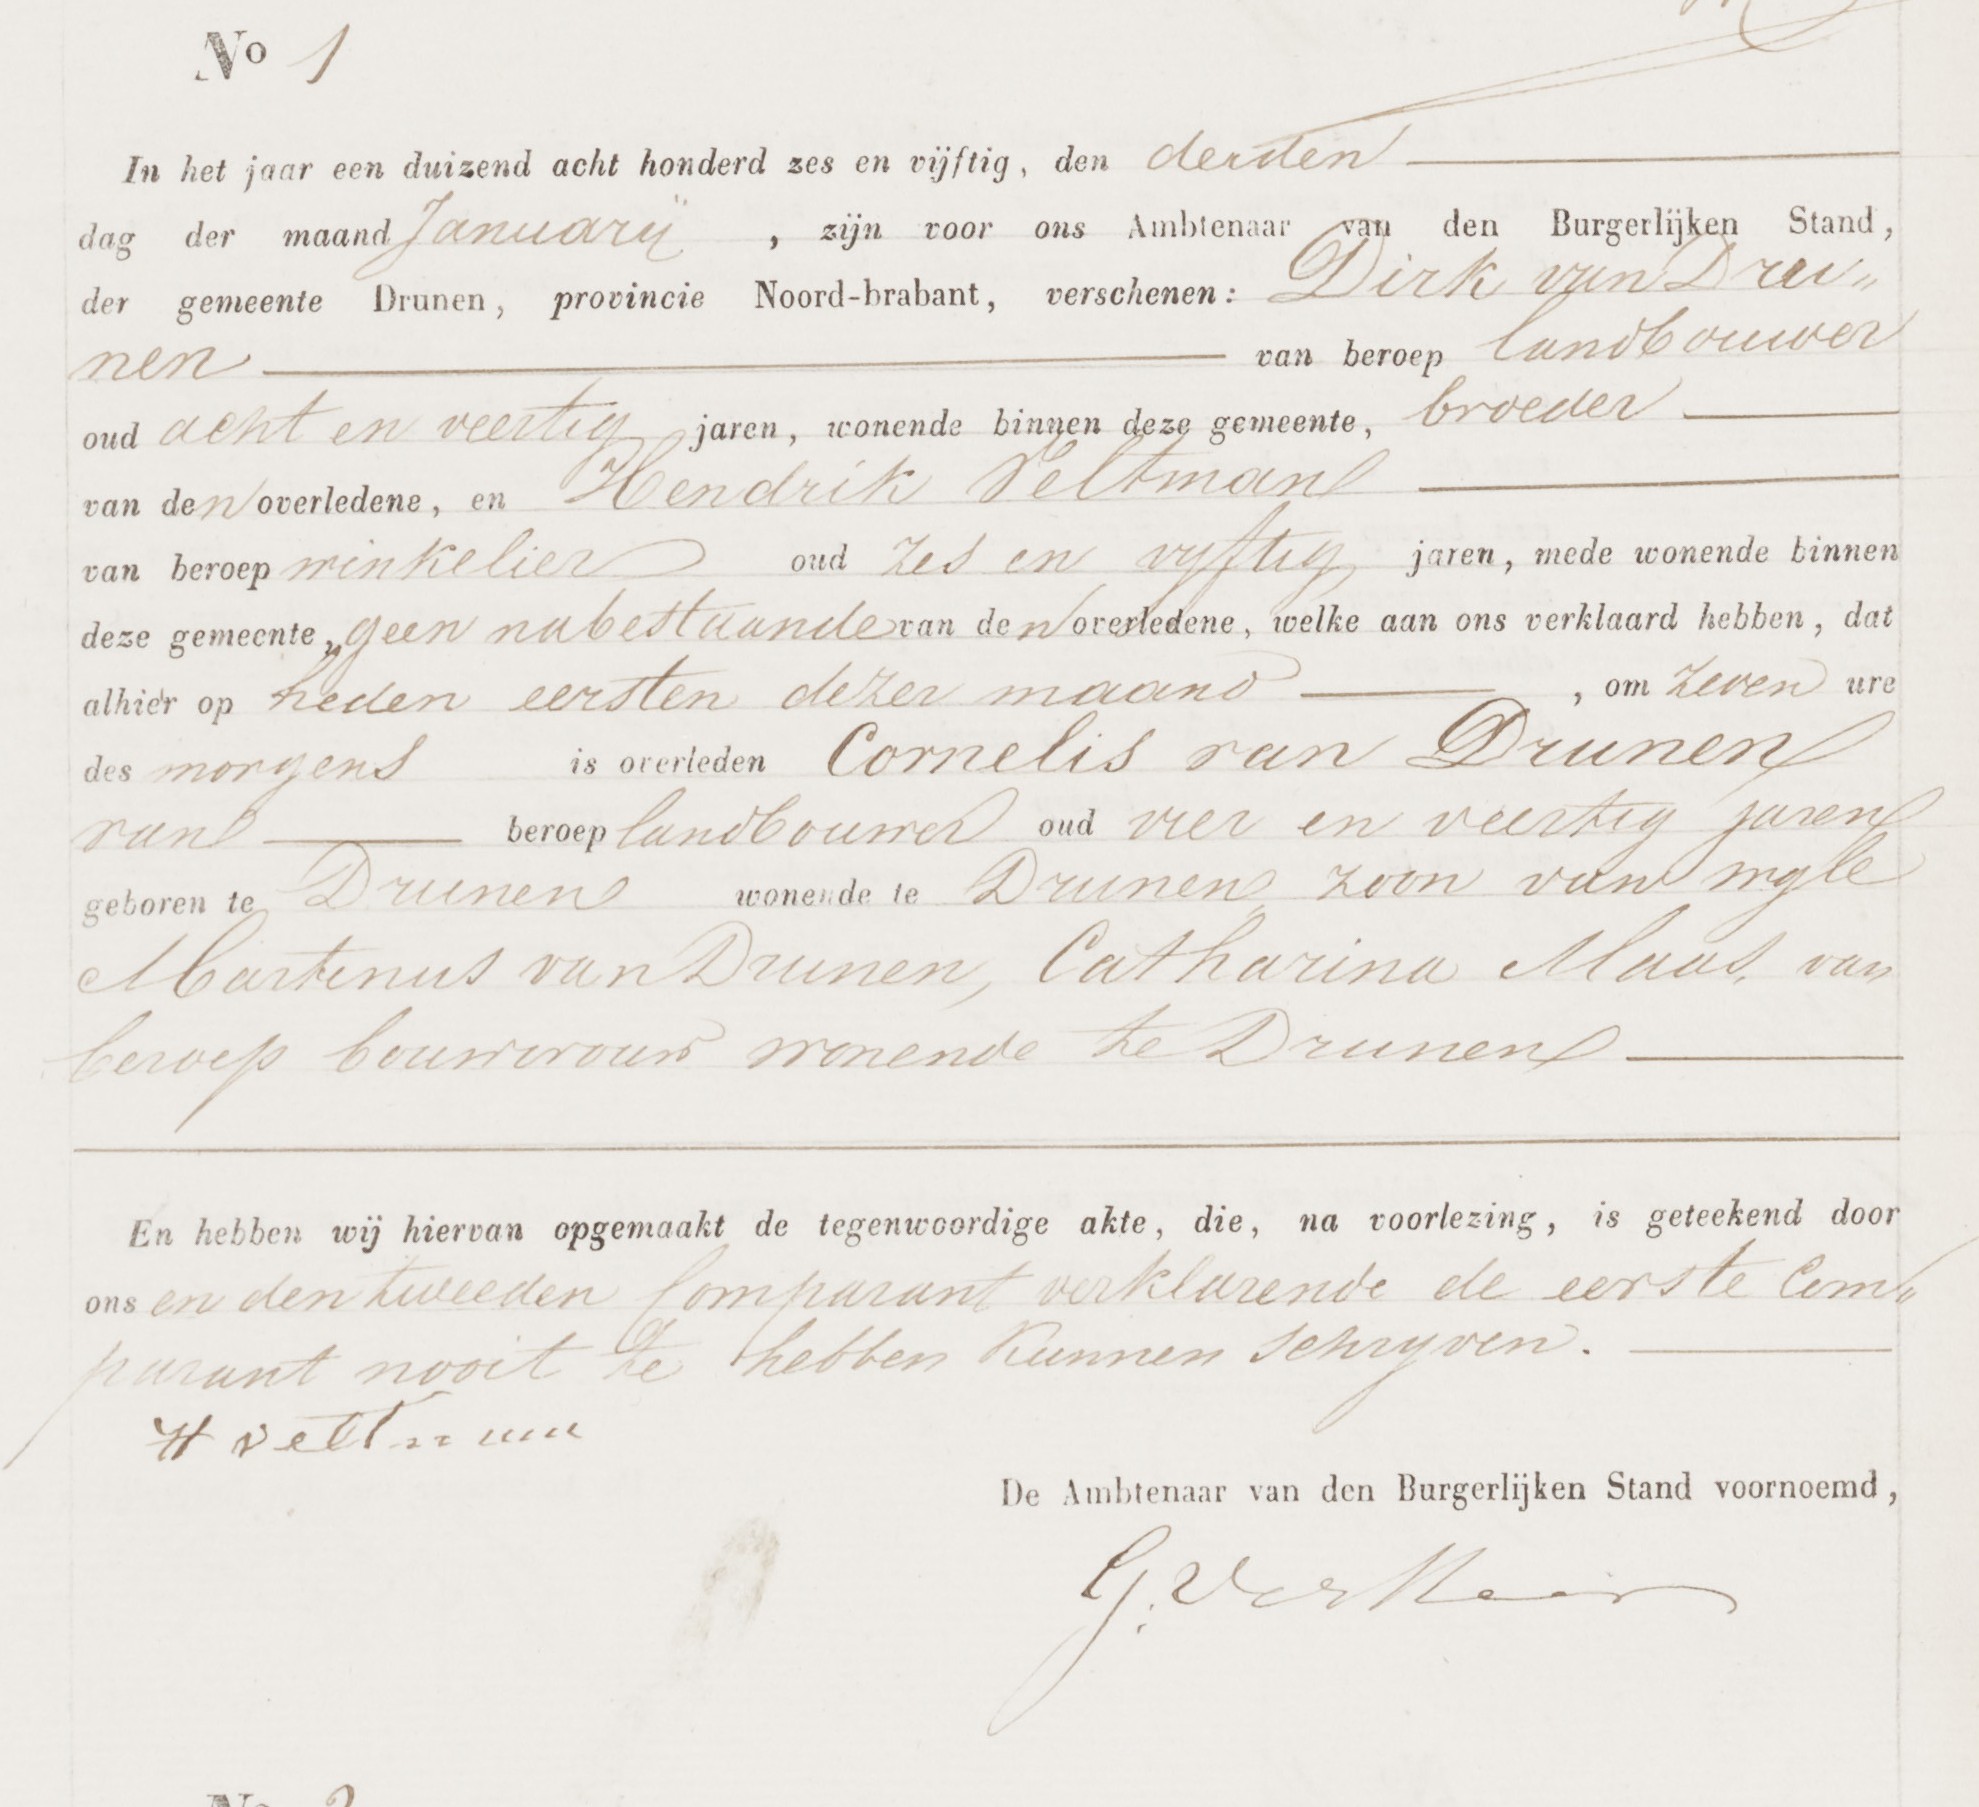 No 1
In het jaar een duizend acht honderd zes en vijftig, den derden
dag der maand Januarij , zijn voor ons Ambtenaar van den Burgerlijken Stand,
der gemeente Drunen, provincie Noord-brabant, verschenen: Dirk van Dru„
nen van beroep landbouwer
oud acht en veertig jaren, wonende binnen deze gemeente, broeder
van den overledene, en Hendrik Veltman
van beroep winkelier oud zes en vyftig jaren, mede wonende binnen
deze gemeente, geen nabestaande van den overledene, welke aan ons verklaard hebben, dat
alhier op heden eersten dezer maand , om zeven ure
des morgens is overleden Cornelis van Drunen
van beroep landbouwer oud vier en veertig jaren
geboren te Drunen wonende te Drunen, zoon van wyle
Martinus van Drunen, Catharina Maas, van
beroep bouwvrouw wonende te Drunen
En hebben wij hiervan opgemaakt de tegenwoordige akte, die, na voorlezing, is geteekend door
ons en den tweeden Comparant verklarende de eerste Com„
parant nooit te hebben kunnen schryven.
H veltman
De Ambtenaar van den Burgerlijken Stand voornoemd,
G.
No 2